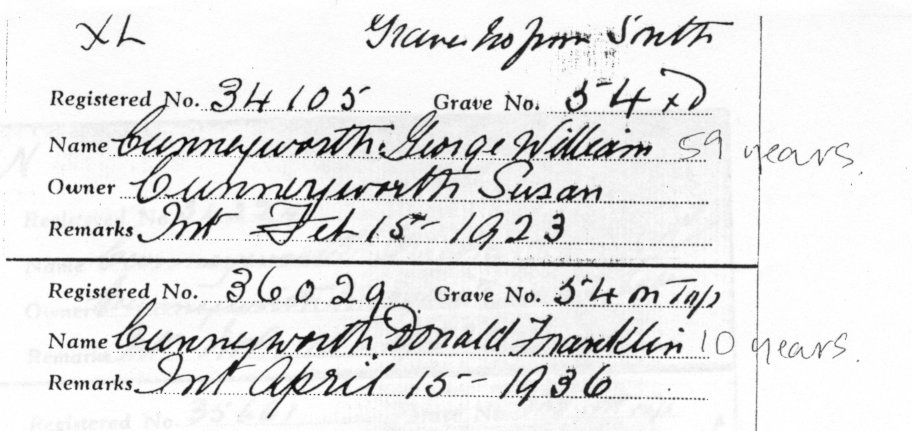 XL Graves No from South
Registered No. 34105 Grave No. 54 xD
Name Cunneyworth. George William 59 years.
Owner Cunneryworth Susan
Remarks Int Feb 15 - 1923
Registered No. 36029 Grave No. 54 on Top
Name Cunneyworth Donald Franklin 10 years.
Remarks Int April 15 - 1936